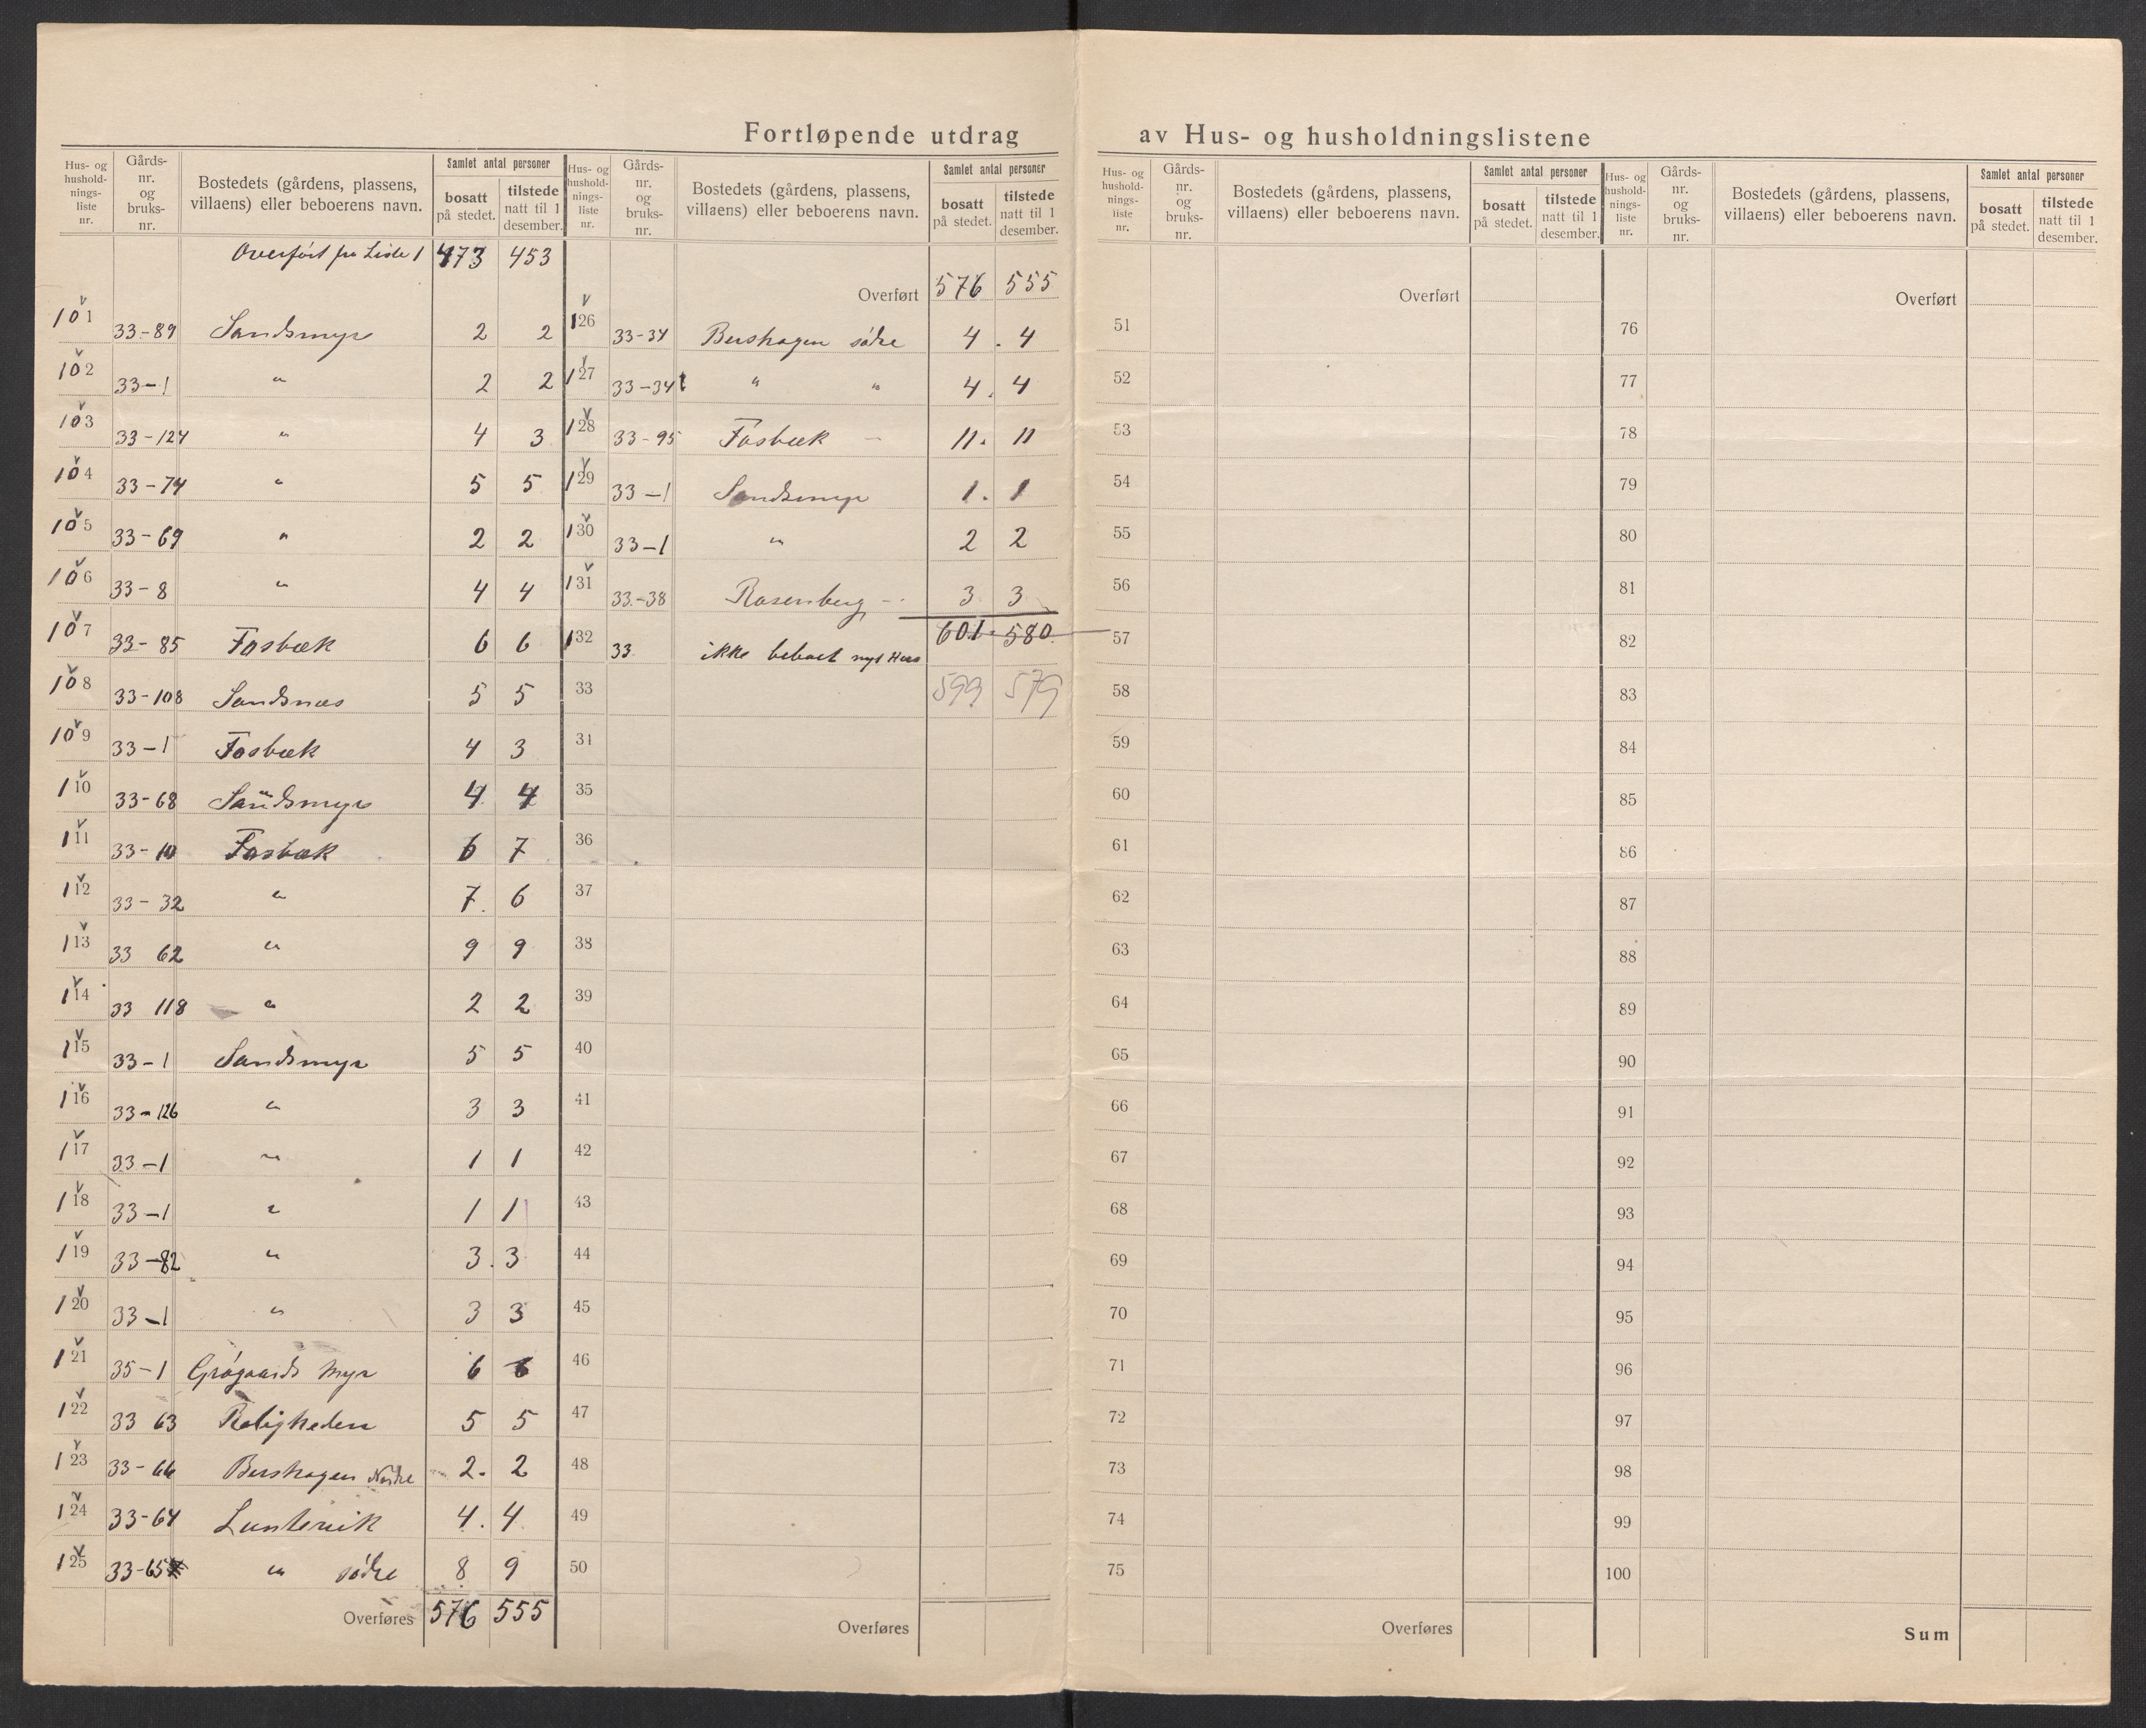 Fortløpende utdrag av Hus- og husholdningslistene
Hus- og husholdnings-liste nr. Gårds-nr. og bruks-nr. Bostedets (gårdens, plassens, villaens) eller beboerens navn. Samlet antal personer bosatt på stedet. tilstede natt til 1 desember.
Overført fra Liste 1 473 453
101 33-89 Sandsmyr 2 2
102 33-1 " 2 2
103 33-124 " 4 3
104 33-74 " 5 5
105 33-69 " 2 2
106 33-8 " 4 4
107 33-85 Fosbæk 6 6
108 33-108 Sandsnæs 5 5
109 33-1 Fosbæk 4 3
110 33-68 Sandsmyr 4 4
111 33-10 Fosbæk 6 7
112 33-32 " 7. 6
113 33 62 " 9 9
114 33 118 " 2 2
115 33-1 Sandsmyr 5 5
116 33-126 " 3 3
117 33-1 " 1 1
118 33-1 " 1 1
119 33-82 " 3. 3
120 33-1 " 3 3
121 35-1 Grøgaards Myr 6 6
122 33 63 Roligheden 5 5
123 33-66 Bershagen Nordre 2. 2
124 33-64 Luntervik 4. 4
125 33-65 " södre 8 9
Overføres 576 555
Hus- og husholdnings-liste nr. Gårds-nr. og bruks-nr. Bostedets (gårdens, plassens, villaens) eller beboerens navn. Samlet antal personer bosatt på stedet. tilstede natt til 1 desember.
Overført 576 555
126 33-34 Bershagen södre 4. 4
127 33-34 " " 4. 4
128 33-95 Fosbæk - 11. 11
129 33-1 Sandsmyr 1. 1
130 33-1 " 2 2
131 33-38 Rosenberg - 3 3
601 580
132 33 ikke beboet nyt Hus
33 599 579
34
35
36
37
38
39
40
41
42
43
44
45
46
47
48
49
50
Overføres
Hus- og husholdnings-liste nr. Gårds-nr. og bruks-nr. Bostedets (gårdens, plassens, villaens) eller beboerens navn. Samlet antal personer bosatt på stedet. tilstede natt til 1 desember.
Overført
51
52
53
54
55
56
57
58
59
60
61
62
63
64
65
66
67
68
69
70
71
72
73
74
75
Overføres
Hus- og husholdnings-liste nr. Gårds-nr. og bruks-nr. Bostedets (gårdens, plassens, villaens) eller beboerens navn. Samlet antal personer bosatt på stedet. tilstede natt til 1 desember.
Overført
76
77
78
79
80
81
82
83
84
85
86
87
88
89
90
91
92
93
94
95
96
97
98
99
100
Sum